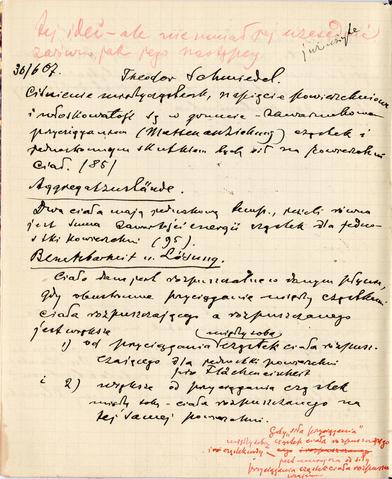 tej idei – ale nie umiał jej uzasadnić
zarówno jak jego następcy
już użyte
30/6 07.
Theodor Schmiedel.
Ciśnienie międzycząsteczk, napięcie powierzchniowe
i włoskowatość są w gruncie
przyciąganiem (Massenanziehung) cząstek i
jednakowym skutkiem sił na powierzchni
ciał. (85)
Aggregatzustände.
Dwa ciała mają jednakową temp., jeżeli równa
jest suma zawartości energii cząstek dla jedno-
stki powierzchni (95).
Benetzbarkeit u. Lösung.
Ciało dane jest rozpuszczalne w danym płynie,
gdy obustronne przyciąganie między cząstkami
ciała rozpuszczającego a rozpuszczanego
jest większe (między sobą)
1) od przyciągania cząstek ciała rozpusz-
czającego dla jednostki powierzchni
pro Flächeneinheit
i 2) większe od przyciągania cząstek
między sobą ciała rozpuszczanego na
tej samej powierzchni.
Gdy „siła przyciągania”
między sobą cząstek ciała rozpuszczającego
jest mniejsza od siły
przyciągania cząstek ciała